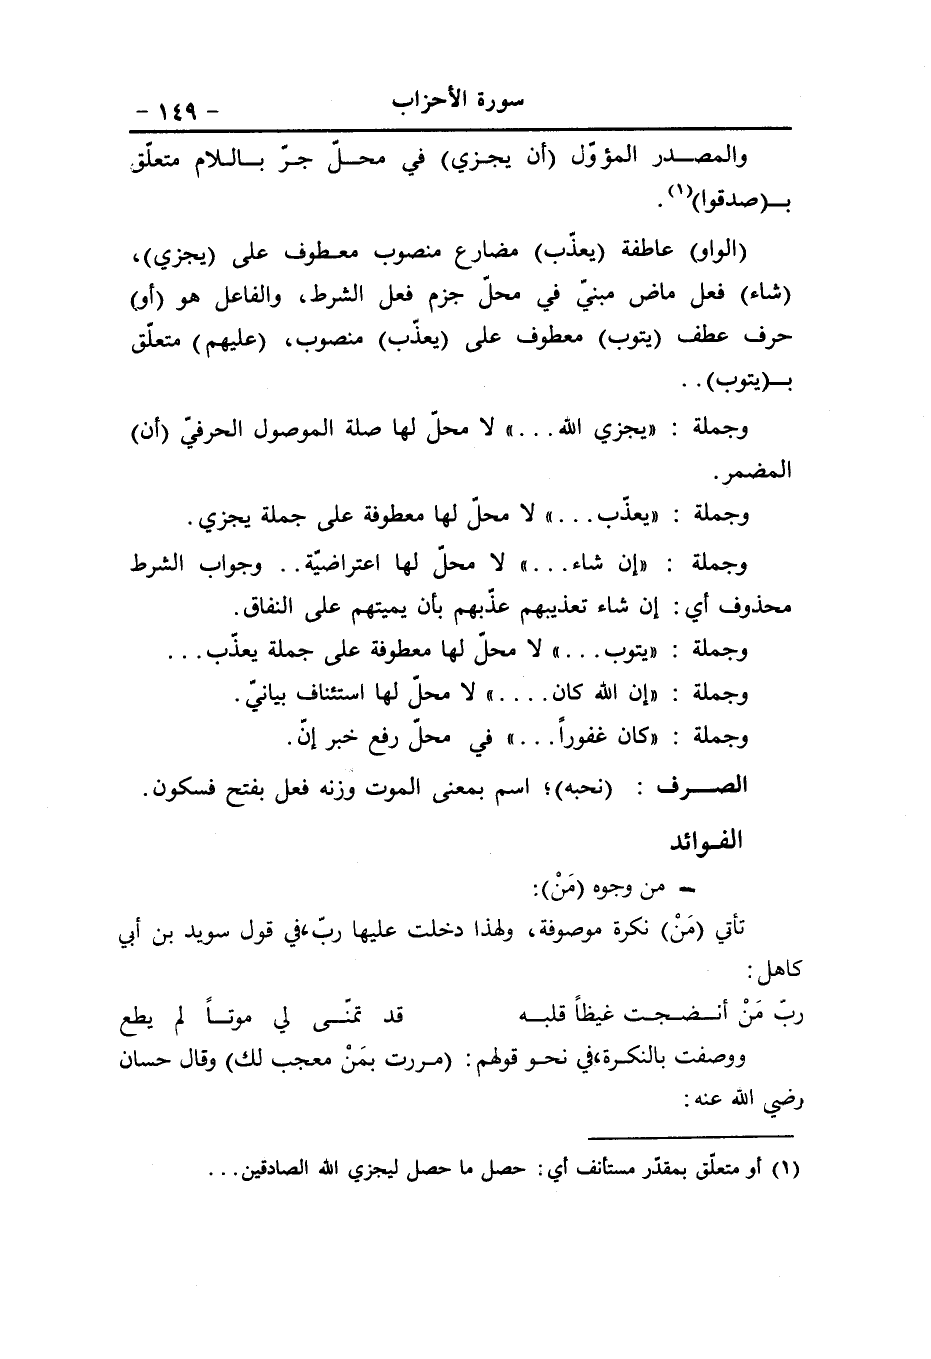 سورة الأحزاب
- ١٤٩ -
والمصدر المؤوّل (أن يجزي) في محلّ جرّ باللام متعلّق
بـ(صدقوا)(١).
(الواو) عاطفة (يعذّب) مضارع منصوب معطوف على (يجزي)،
(شاء) فعل ماض مبنيّ في محلّ جزم فعل الشرط، والفاعل هو (أو)
حرف عطف (يتوب) معطوف على (يعذّب) منصوب، (عليهم) متعلّق
بـ(يتوب)..
وجملة : «يجزي الله...» لا محلّ لها صلة الموصول الحرفيّ (أن)
المضمر.
وجملة : «يعذّب...» لا محلّ لها معطوفة على جملة يجزي.
وجملة : «إن شاء...» لا محلّ لها اعتراضيّة.. وجواب الشرط
محذوف أي: إن شاء تعذيبهم عذّبهم بأن يميتهم على النفاق.
وجملة : «يتوب...» لا محلّ لها معطوفة على جملة يعذّب...
وجملة : «إن الله كان....» لا محلّ لها استئناف بيانيّ.
وجملة : «كان غفوراً...» في محلّ رفع خبر إنّ.
الصرف : (نحبه)؛ اسم بمعنى الموت وزنه فعل بفتح فسكون.
الفوائد
– من وجوه (مَنْ):
تأتي (مَنْ) نكرة موصوفة، ولهذا دخلت عليها ربّ،في قول سويد بن أبي
كاهل:
ربّ مَنْ أنضجت غيظاً قلبه قد تمنّى لي موتاً لم يطع
ووصفت بالنكرة،في نحو قولهم: (مررت بمَنْ معجب لك) وقال حسان
رضي الله عنه:
(١) أو متعلّق بمقدّر مستأنف أي: حصل ما حصل ليجزي الله الصادقين...